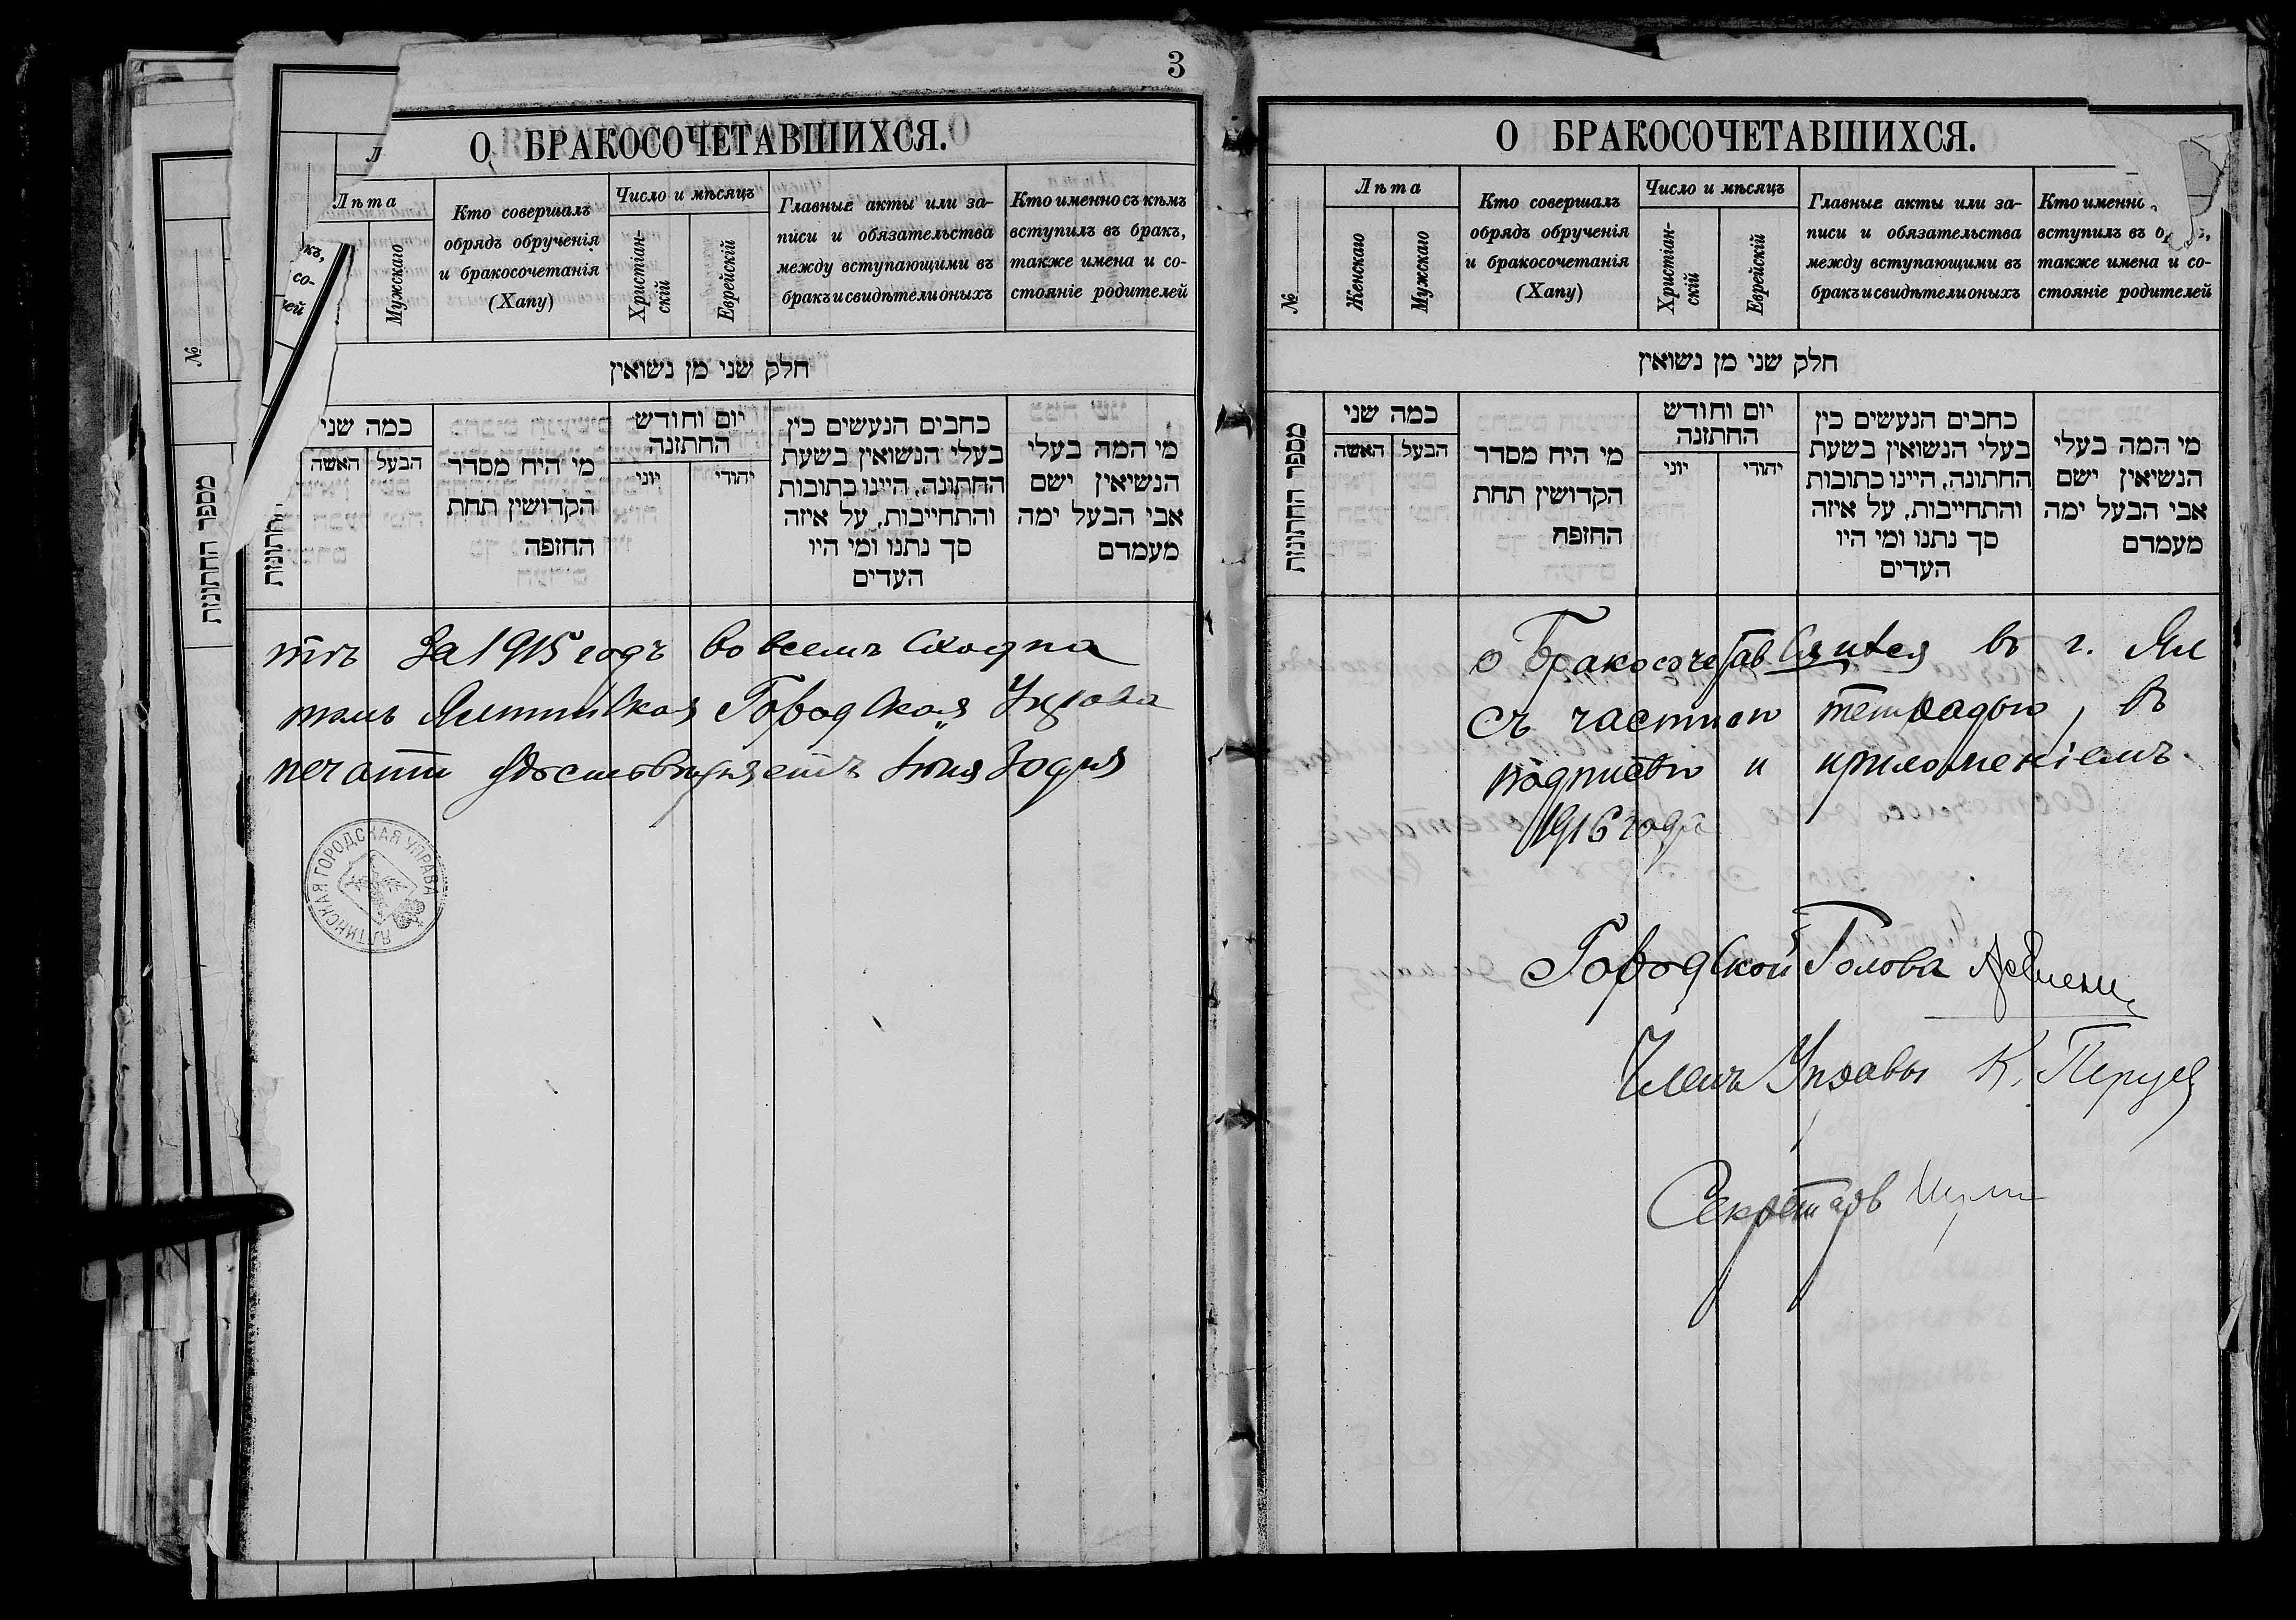 3
О БРАКОСОЧЕТАВШИХСЯ.
Лѣта
Мужскаго
Кто совершалъ
обрядъ обрученія
и бракосочетанія
(Хапу)
Число и мѣсяцъ
Христіан-
скій
Еврейскій
Главные акты или за-
писи и обязательства
между вступающими въ
бракъ и свидѣтели оныхъ
Кто именно съ кѣмъ
вступилъ въ бракъ,
также имена и со-
стояніе родителей
חלק שני מן נשואין
כמה שני
האשה
הבעל
מי היח מסדר
הקדושין תחת
החופה
יום וחודש
החתונה
יוני
יהודי
כתבים הנעשים בין
בעלי הנשואין בשעת
החתונה, היינו כתובות
והתחייבות, על איזה
סך נתנו ומי היו
העדים
מי המה בעלי
הנשיאין ישם
אבי הבעל ימה
מעמדם
№
מספר החתונות
къ,
со-
ей
тѣ За 1915 годъ во всемъ сходна
томъ Ялтинская Городская Управа
печати удостовѣряетъ Іюня
ЯЛТИНСКАЯ ГОРОДСКАЯ УПРАВА
О БРАКОСОЧЕТАВШИХСЯ.
№
Лѣта
Женскаго
Мужскаго
Кто совершалъ
обрядъ обрученія
и бракосочетанія
(Хапу)
Число и мѣсяцъ
Христіан-
скій
Еврейскій
Главные акты или за-
писи и обязательства
между вступающими въ
бракъ и свидѣтели оныхъ
Кто именно
вступилъ въ
также имена и со-
стояніе родителей
חלק שני מן נשואין
מספר החתונות
כמה שני
האשה
הבעל
מי היח מסדר
הקדושין תחת
החופה
יום וחודש
החתונה
יוני
יהודי
כתבים הנעשים בין
בעלי הנשואין בשעת
החתונה, היינו כתובות
והתחייבות, על איזה
סך נתנו ומי היו
העדים
מי המה בעלי
הנשיאין ישם
אבי הבעל ימה
מעמדם
о Бракосочетавшихся въ г. Ял
съ частною тетрадью, въ
подписью и приложеніемъ
1916 года
Городской Голова
Членъ Управы К.
Секретарь